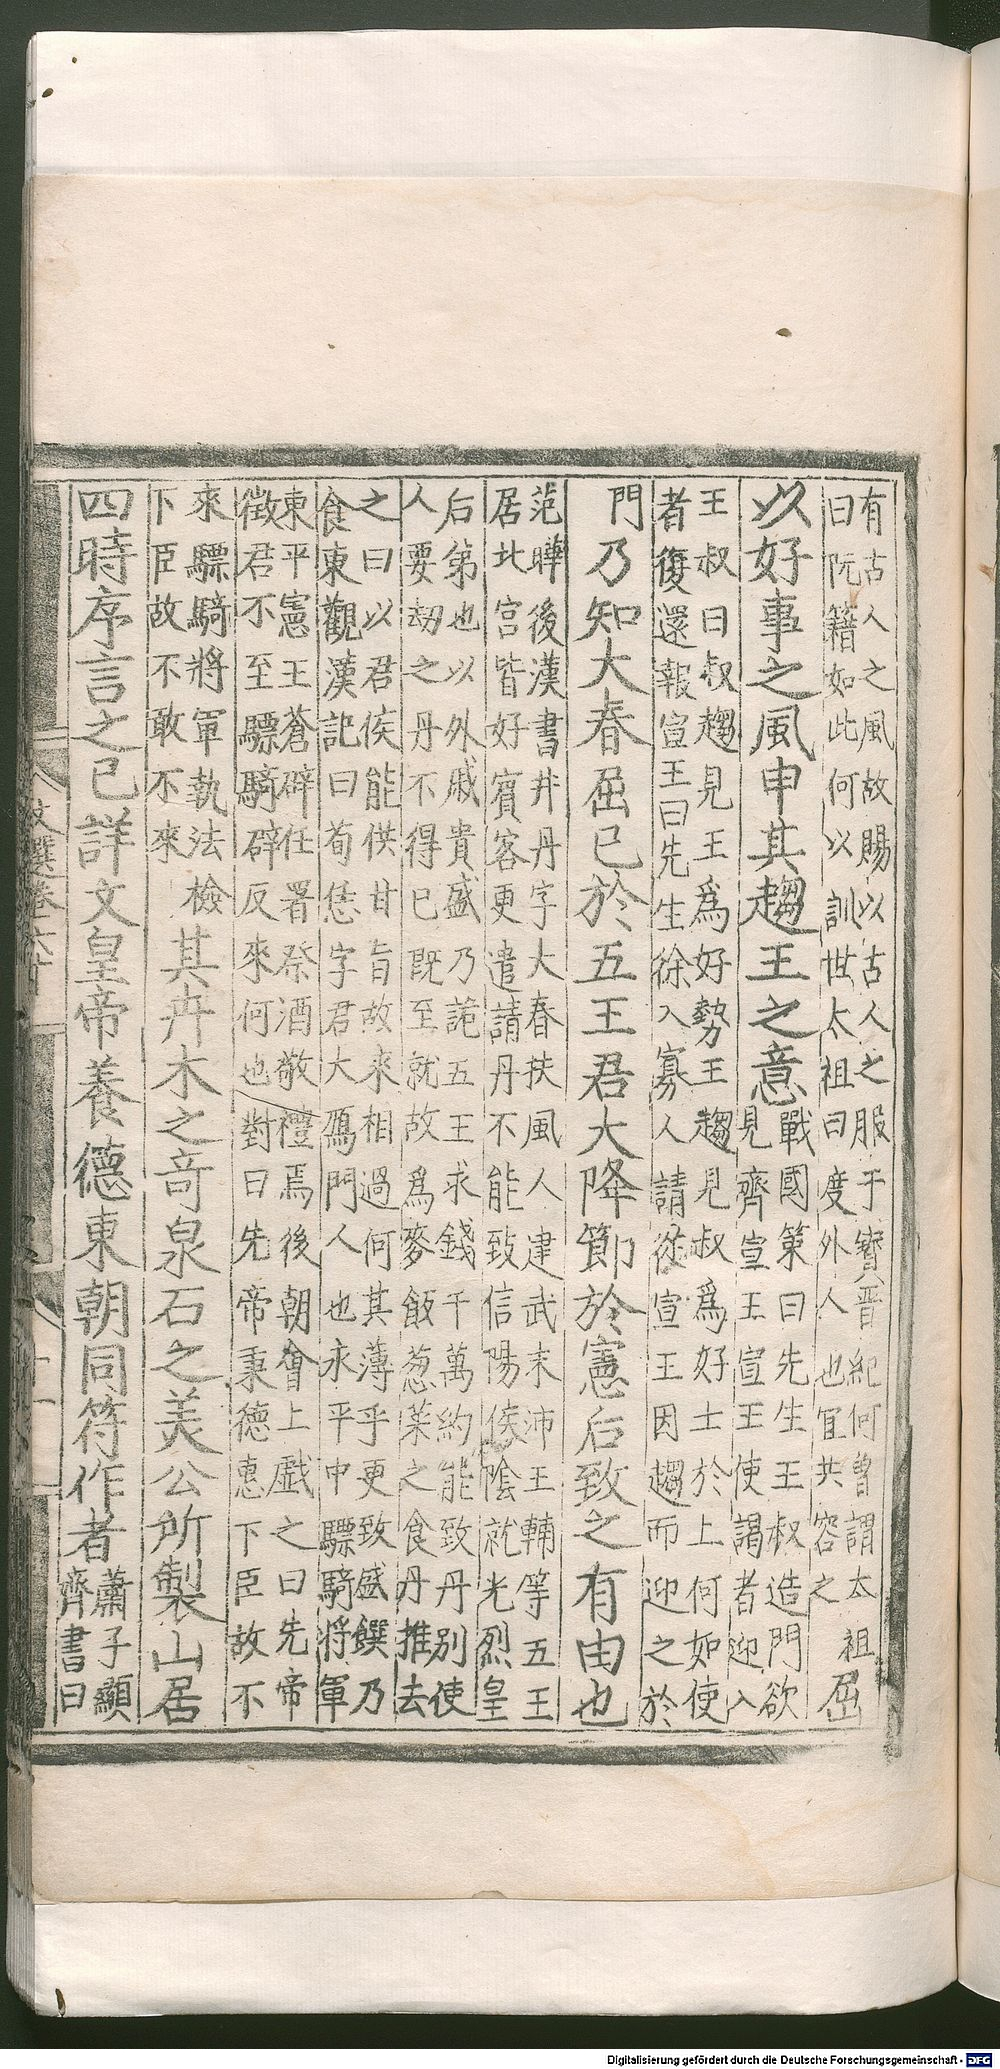 有古人之風故賜以古人之服于寶晋紀何曾謂太祖
曰阮籍如此何以訓世太祖曰度外人也冝共容之屈
以好事之風申其趨王之意
戰國策曰先生王叔造門欲
見齊宣王宣王使謁者迎入
王叔曰叔趨見王爲好勢王趨見叔爲好士於上何如使
者復還報宣王曰先生徐入寡人請從宣王因趨而迎之於
門乃知大春屈已於五王君大降節於憲后致之有由也
范曄後漢書井丹字大春扶風人建武末沛王輔等五王
居北宮皆好賓客更遣請丹不能致信陽侯陰就光烈皇
后弟也以外戚貴盛乃詭五王求錢千萬約能致丹别使
人要刼之丹不得已既至就故爲麥飯葱菜之食丹推去
之曰以君侯能供甘旨故来相過何其薄乎更致盛饌乃
食東觀漢記曰荀恁字君大鴈門人也永平中驃騎將軍
東平憲王蒼辟任署祭酒敬禮焉後朝會上戲之曰先帝
徵君不至驃騎辟反來何也對曰先帝秉德惠下臣故不
來驃騎將軍執法檢
下臣故不敢不來
其卉木之竒泉石之美公所製山居
四時序言之已詳文皇帝養德東朝同符作者
蕭子顯
齊書曰
文選卷六十
十一
Digitalisierung gefördert durch die Deutsche Forschungsgemeinschaft - DFG